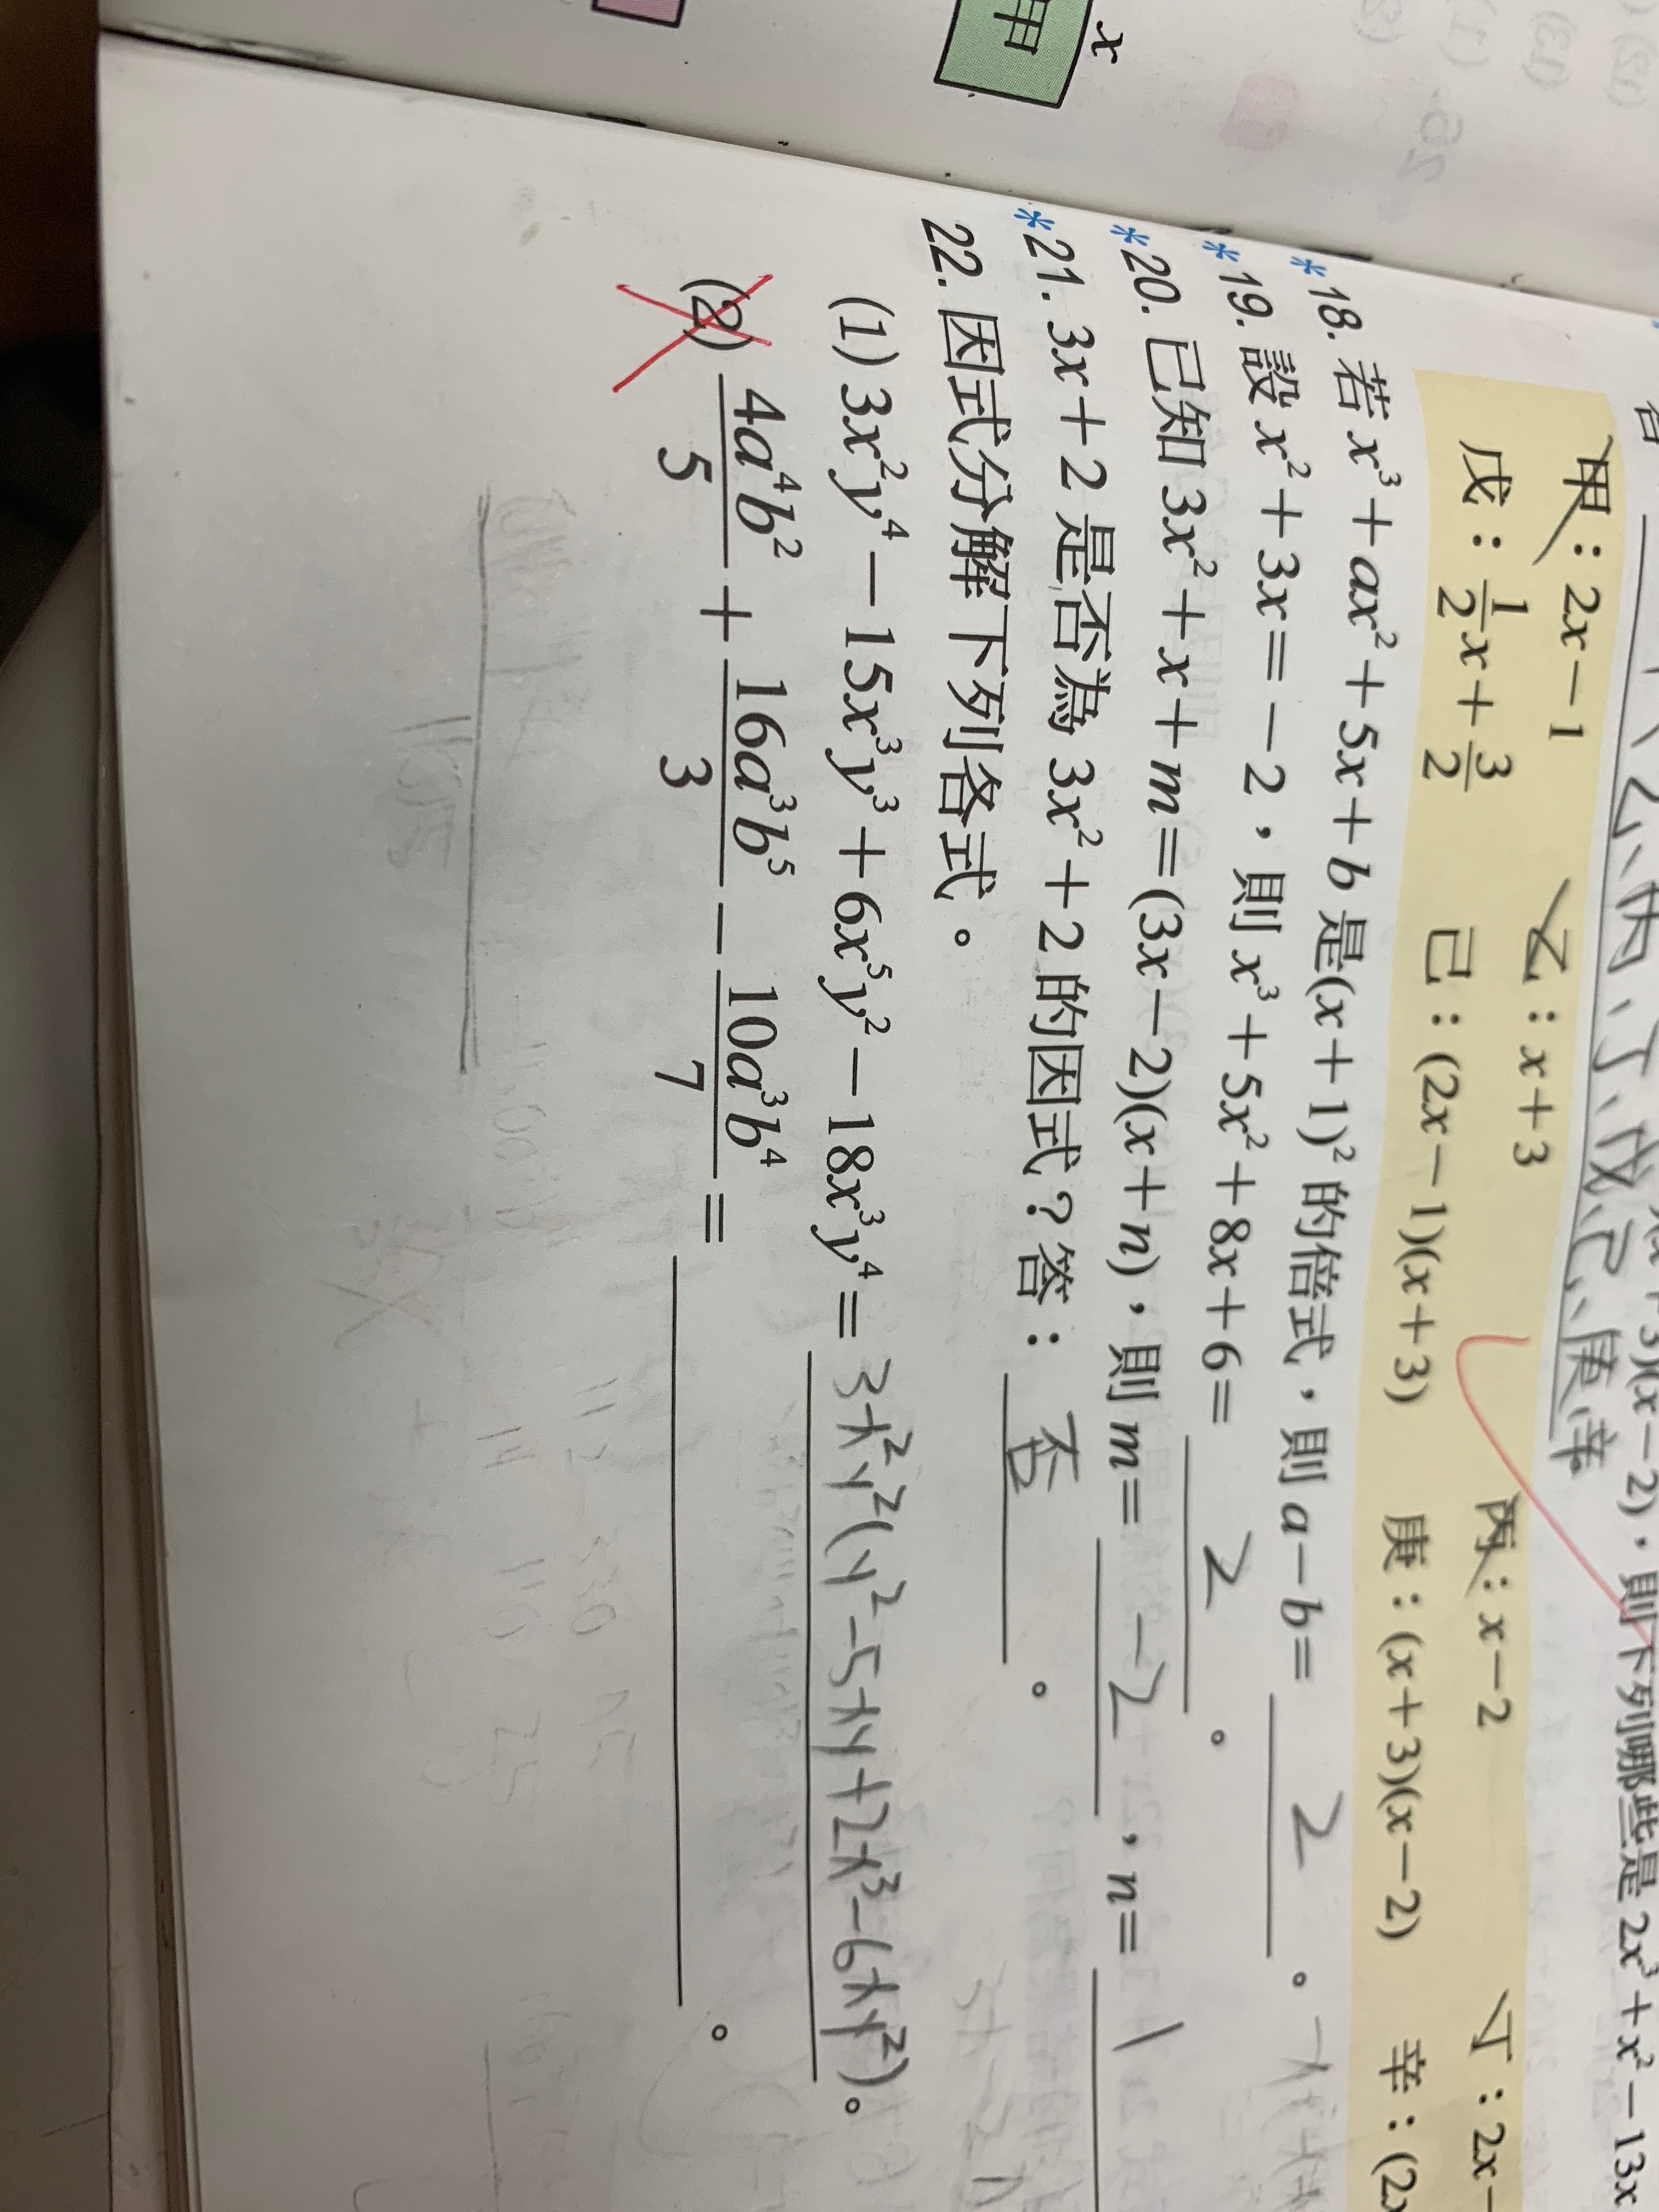 甲 x
則下列哪些是 2x³+x²-13x
乙、丙、丁、戊、己、庚、辛
甲：2x-1 乙：x+3 丙：x-2 丁：2x-
戊：1/2x+3/2 己：(2x-1)(x+3) 庚：(x+3)(x-2) 辛：(2x
*18. 若 x³+ax²+5x+b 是(x+1)²的倍式，則 a-b= 2 。
*19. 設 x²+3x=-2，則 x³+5x²+8x+6= 2 。
*20. 已知 3x²+x+m=(3x-2)(x+n)，則 m= -2 ，n= 1
*21. 3x+2 是否為 3x²+2 的因式？答： 否 。
22. 因式分解下列各式。
(1) 3x²y⁴-15x³y³+6x⁵y²-18x³y⁴= 3x²y²(y²-5xy+2x³-6xy²) 。
(2) 4a⁴b²/5 + 16a³b⁵/3 - 10a³b⁴/7 = 。